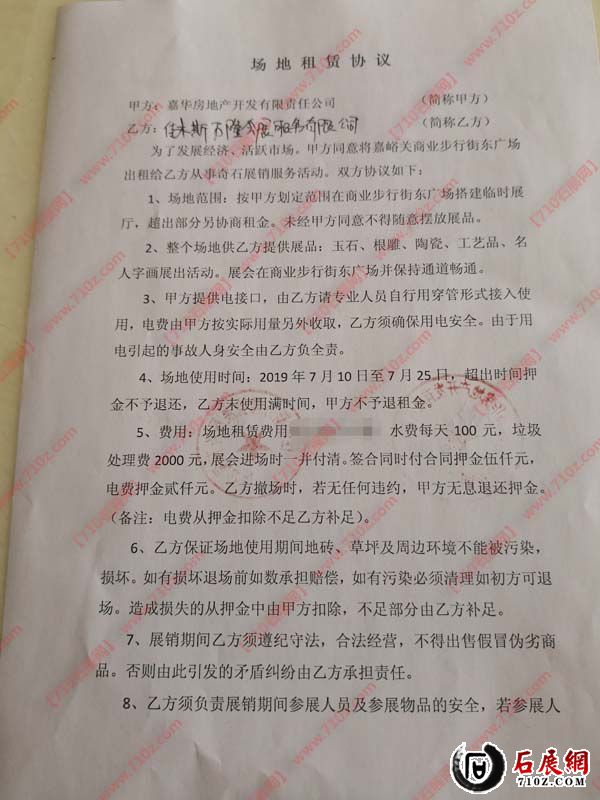 场地租赁协议
甲方：嘉华房地产开发有限责任公司（简称甲方）
乙方：佳木斯万隆会展服务有限公司（简称乙方）
为了发展经济、活跃市场。甲方同意将嘉峪关商业步行街东广场
出租给乙方从事奇石展销服务活动。双方协议如下：
1、场地范围：按甲方划定范围在商业步行街东广场搭建临时展
厅，超出部分另协商租金。未经甲方同意不得随意摆放展品。
2、整个场地供乙方提供展品：玉石、根雕、陶瓷、工艺品、名
人字画展出活动。展会在商业步行街东广场并保持通道畅通。
3、甲方提供电接口，由乙方请专业人员自行用穿管形式接入使
用，电费由甲方按实际用量另外收取，乙方须确保用电安全。由于用
电引起的事故人身安全由乙方负全责。
4、场地使用时间：2019年7月10日至7月25日，超出时间押
金不予退还，乙方未使用满时间，甲方不予退租金。
5、费用：场地租赁费用 水费每天100元，垃圾
处理费2000元，展会进场时一并付清。签合同时付合同押金伍仟元，
电费押金贰仟元。乙方撤场时，若无任何违约，甲方无息退还押金。
（备注：电费从押金扣除不足乙方补足）。
6、乙方保证场地使用期间地砖、草坪及周边环境不能被污染，
损坏。如有损坏退场前如数承担赔偿，如有污染必须清理如初方可退
场。造成损失的从押金中由甲方扣除，不足部分由乙方补足。
7、展销期间乙方须遵纪守法，合法经营，不得出售假冒伪劣商
品。否则由此引发的矛盾纠纷由乙方承担责任。
8、乙方须负责展销期间参展人员及参展物品的安全，若参展人
【710石展网】
www.710z.com
石展網
www.710z.com